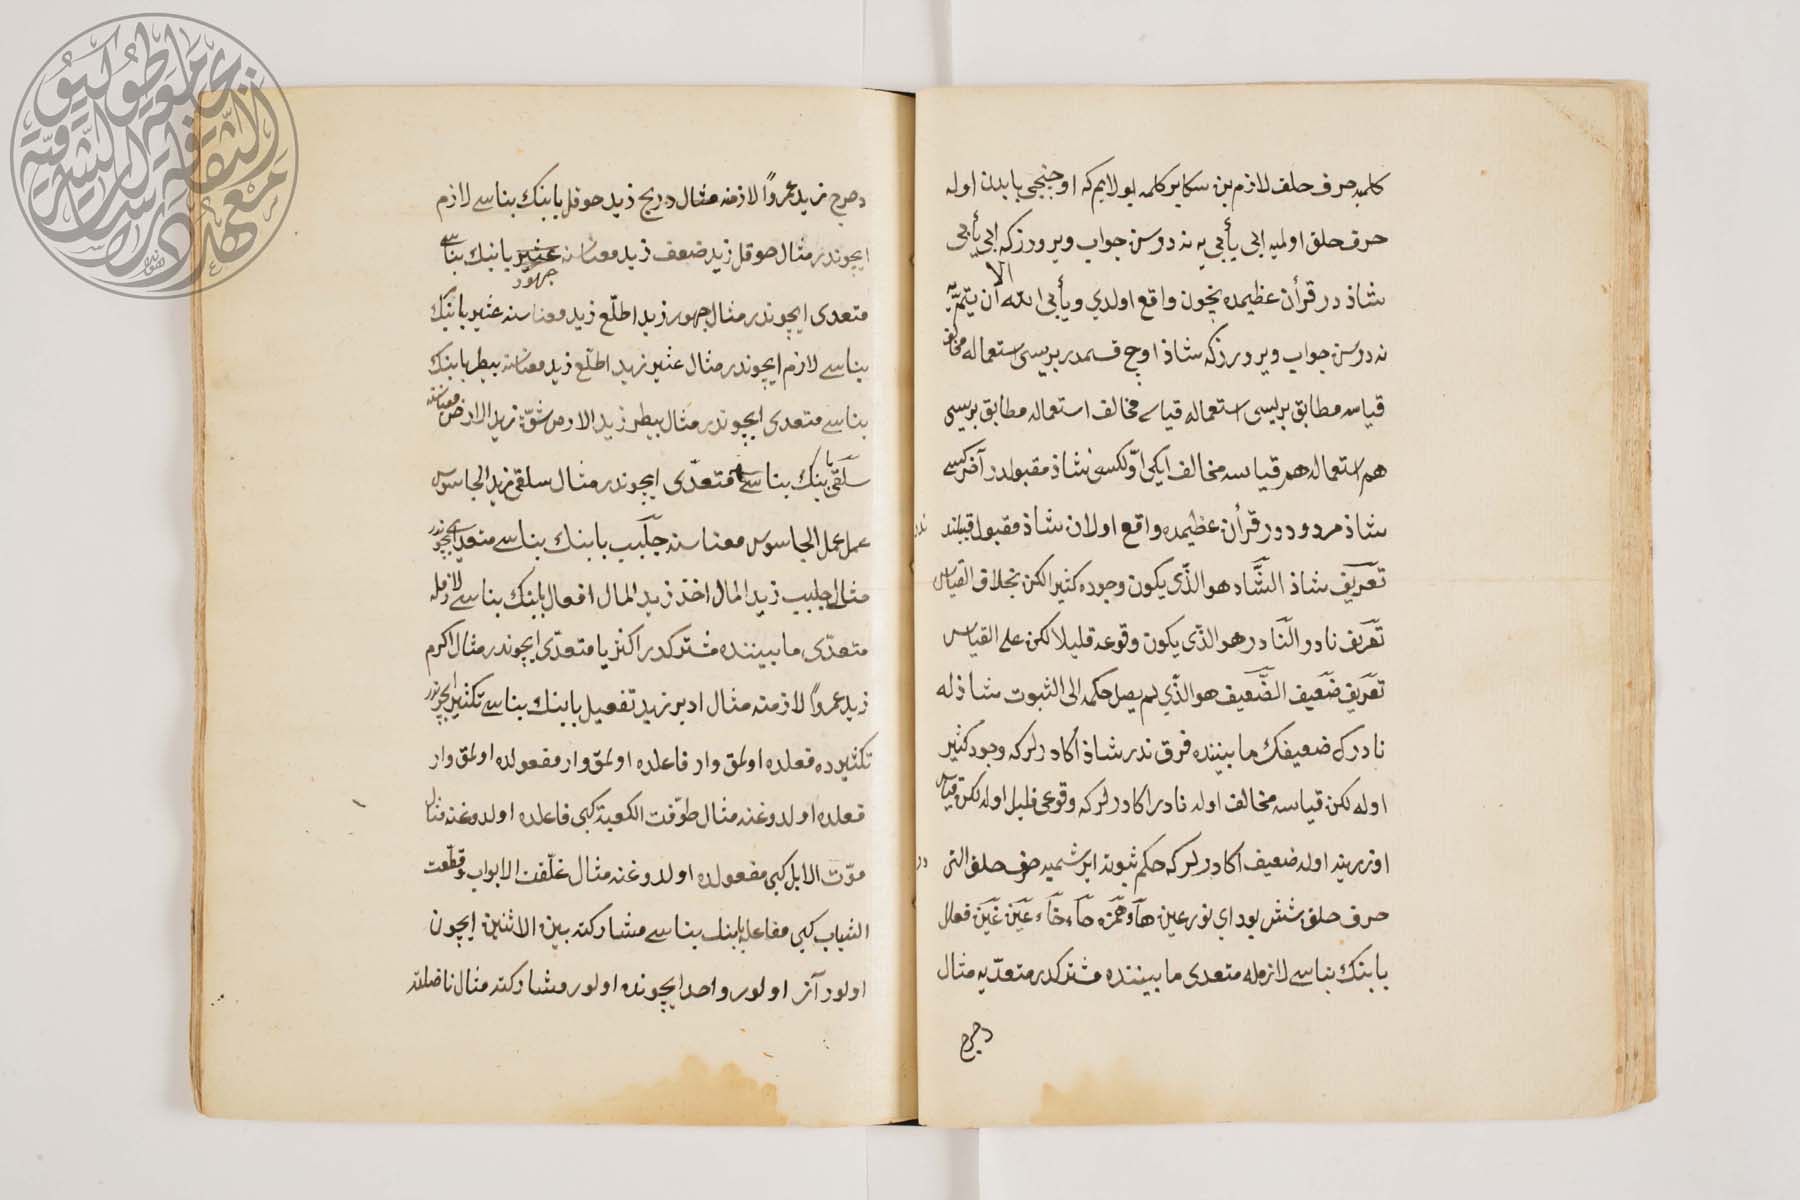 كلمه حرف حلق لازم بن سكا بر كلمه بولايم كه اوچنجى بابدن اوله
حرف حلق اولميه ابى يأبى يه نه دورسن جواب ويرورز كه ابى يأبى
شاذدر قرأن عظيمده نيچون واقع اولدي ويأبى الله الا ان يتمّ يه
نه دورسن جواب ويرورز كه شاذ اوچ قسمدر بريسى استعماله مخالف
قياسه مطابق بريسى استعماله قياسه مخالف استعماله مطابق بريسى
هم استعماله هم قياسه مخالف ايكى اوّلكسى شاذ مقبولدر آخركسى
شاذ مردوددر قرأن عظيمده واقع اولان شاذ مقبول قبيلندندر
تعريف شاذ الشّاذ هو الذّى يكون وجوده كثيرا لكن بخلاف القياس
تعريف نادر النّادر هو الذّى يكون وقوعه قليلا لكن على القياس
تعريف ضعيف الضّعيف هو الذّي لم يصل حكمه الى الثبوت شاذله
نادرك ضعيفك مابيننده فرق ندر شاذ اكا ديرلر كه وجود كثير
اوله لكن قياسه مخالف اوله نادر اكا ديرلر كه وقوعى قليل اوله لكن قياس
اوزرينه اوله ضعيف اكا ديرلر كه حكم ثبوته ايرشميه حرف حلق التى در
حرف حلق شش بود اي نور عين هآ وهمزه حآء خآء عين غين فعلل
بابنك بناسى لازمله متعدى مابيننده مشتركدر متعدّيه مثال
دحرج
دحرج زيد عمروًا لازمنه مثال دربخ زيد حوقل بابنك بناسى لازم
ايچوندر مثال حوقل زيد ضعف زيد معناسنه جهور بابنك بناسى
متعدى ايچوندر مثال جهور زيد اطلّع زيد معناسنه عثير بابنك
بناسى لازم ايچوندر مثال عثير زيد اطلّع زيد معناسنه بيطر بابنك
بناسى متعدى ايچوندر مثال بيطر زيد الارض شقّ زيد الارض معناسنه
سلقى بابنك بناسى متعدّى ايچوندر مثال سلقى زيد الجاسوس
عمل عمل الجاسوس معناسنه جلبب بابنك بناسى متعدى ايچوندر
مثال جلبب زيد المال اخذ زيد المال افعال بابنك بناسى لازمله
متعدّى مابيننده مشتركدر اكثريا متعدّى ايچوندر مثال اكرم
زيد عمروًا لازمنه مثال ادبر زيد تفعيل بابنك بناسى تكثير ايچوندر
تكثيرده فعلده اولمق وار فاعلده اولمق وار مفعولده اولمق وار
فعلده اولدوغنه مثال طوّفت الكعبة كبى فاعلده اولدوغنه مثال
موّت الابل كبى مفعولده اولدوغنه مثال غلّقت الابواب وقطّعت
الثياب كبى مفاعله بابنك بناسى مشاركته بين الاثنين ايچون
اولور آز اولور واحد ايچونده اولور مشاركته مثال ناضلته